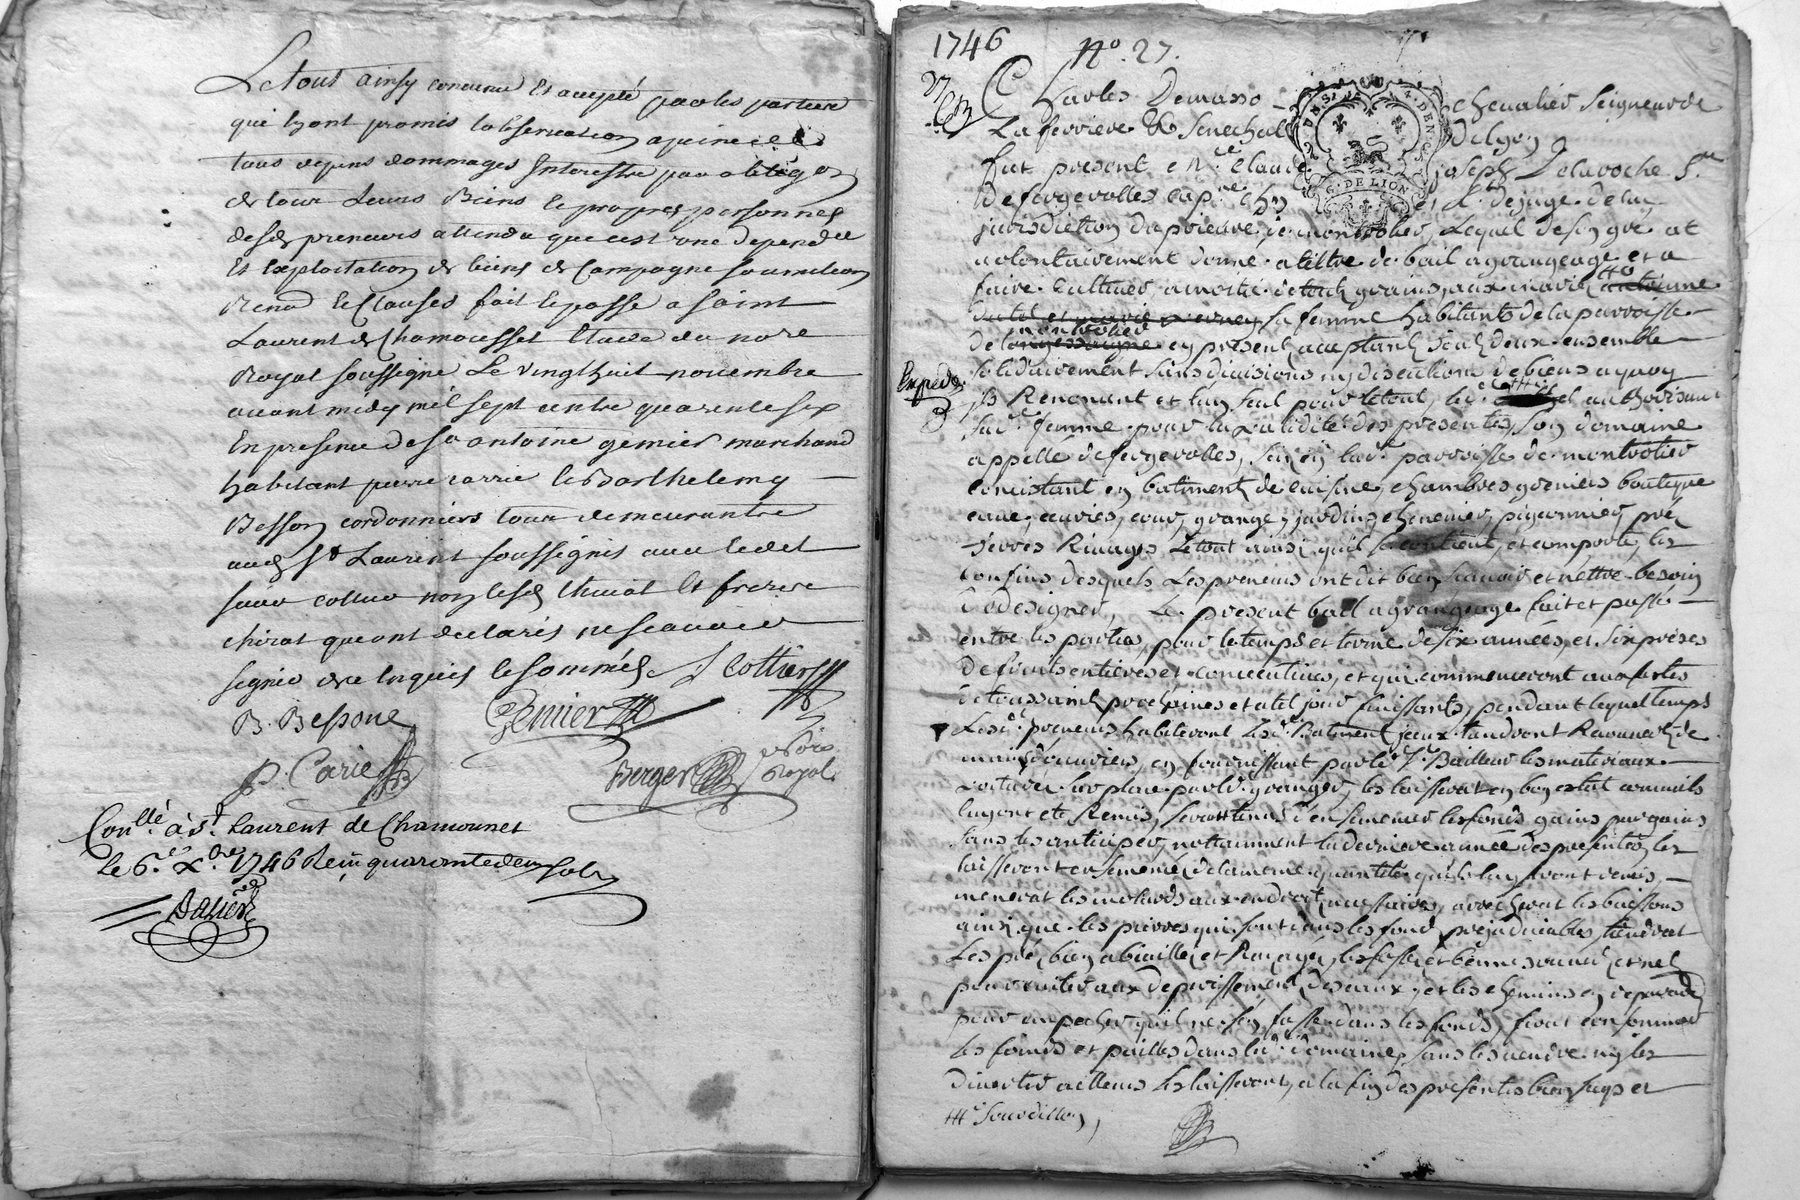 Le tout ainsy convenu et accepté par les parties
qui y ont promis l'observation a peine
tous depens dommages Interests par obligõn
de tous Leurs Biens le propres personnes
desd preneurs attendu que cest une dependce
Et Exploitation de biens de Campagne soumission
Renõn & Clauses fait & passé a Saint
Laurent de Chamousset Etude du nore
Royal soussigné Le vingt huit novembre
avant midy mil sept cents quarente six
En presence de Sr antoine gemier marchand
habitant pierre carrie & Barthelemy
Besson cordonniers tous demeurants
aud St Laurent soussignés avec ledit
sieur cottier non lesd thivot Et
chirat que ont declarés ne scavoir
signer de ce Enquis & sommés J Cottier
B. Bessone Gemier
P. Carie Berger nore Royal
Conllé à St Laurent de Chamousset
le 6e xbre 1746 Reçu quarante deux sols
Dalier
1746 No. 27.
Charles Demasso chevalier Seigneur de
La ferriere & Senechal de lyon
fut present en Mre Claude joseph Delaroche Sr
De fergerolles cap. chn et Lt de juge de la
jurisdiction du prieuré de montrotier, Lequel de son gré et
volontairement donne a tiltre de bail a grangeage et a
faire Cultiver a moitié de tous grains, aux mariés antoinne
sa femme habitants de la parroisse
de longessaigne montrotier cy present acceptants Iceux deux ensemble
solidairement sans divisions ny discutions de biens a quoy
Exped.
Renonçant et l'un seul pour le tout, led. authorisant
sad. femme pour la validité des presentes, son domaine
appellé de fergerolles, scis en lad. parroisse de montrotier
consistant en batiments de cuisine, chambres greniers boutique
cave, ecuries, cour, grange, jardins chenevier, pigeonnier, prés
terres Rivages Le tout ainsi qu'il se contient, et comporte, les
confins desquels Les preneurs ont dit bien scavoir et n'ettre besoin
de designer, Le present bail a grangeage fait et passé
entre les parties, pour le temps et terme de six années, et six prises
de fruits entieres et consecutives, et qui commenceront aux festes
de toussaint prochaines et a tel jour finissants, pendant lequel temps
Lesd. preneurs habiteront Lesd. Batiments, jceux tiendront
main d'ouvriers, en fournissant par led. Sr. Bailleur les materiaux
voiturés sur place par ld. granger, les laisseront en bon estat comm'ils
luy ont eté Remis, seront tenus d'ensemencer les fonds gains par gains
sans les anticiper, nottamment la derniere année des presentes, les
laisseront ensemencés de la meme quantité qu'ils luy seront
meneront les mottards aux endroits necessaires, arracheront les buissons
ainsi que les pierres qui sont dans les fonds prejudiciables, tiendront
Les prés bien abiaillés et Rayagés, les fossés et bennes curées et net
pour eviter aux deperissements des eaux, et les chemins en
pour empecher qu'il ne s'en fasse dans les fonds, feront consommer
les foins et pailles dans led. domaine, sans les vendre ny les
divertir ailleurs Les laisseront, a la fin des presentes bien secs et
Sourdillon,